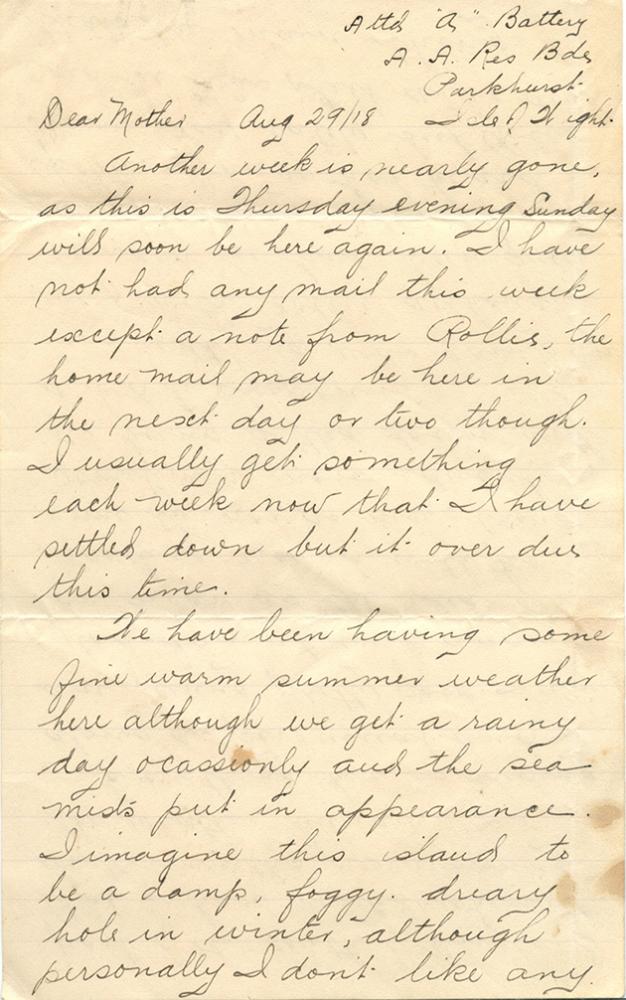 Attd "A" Battery
A. A. Res Bde
Parkhurst
Dear Mother Aug 29/18 Isle of Wight.
Another week is nearly gone,
as this is Thursday evening Sunday
will soon be here again. I have
not had any mail this week
except a note from Rollie, the
home mail may be here in
the next day or two though.
I usually get something
each week now that I have
settled down but it over due
this time.
We have been having some
fine warm summer weather
here although we get a rainy
day ocassionly and the sea
mists put in appearance.
I imagine this island to
be a damp, foggy. dreary
hole in winter, although
personally I don't like any.